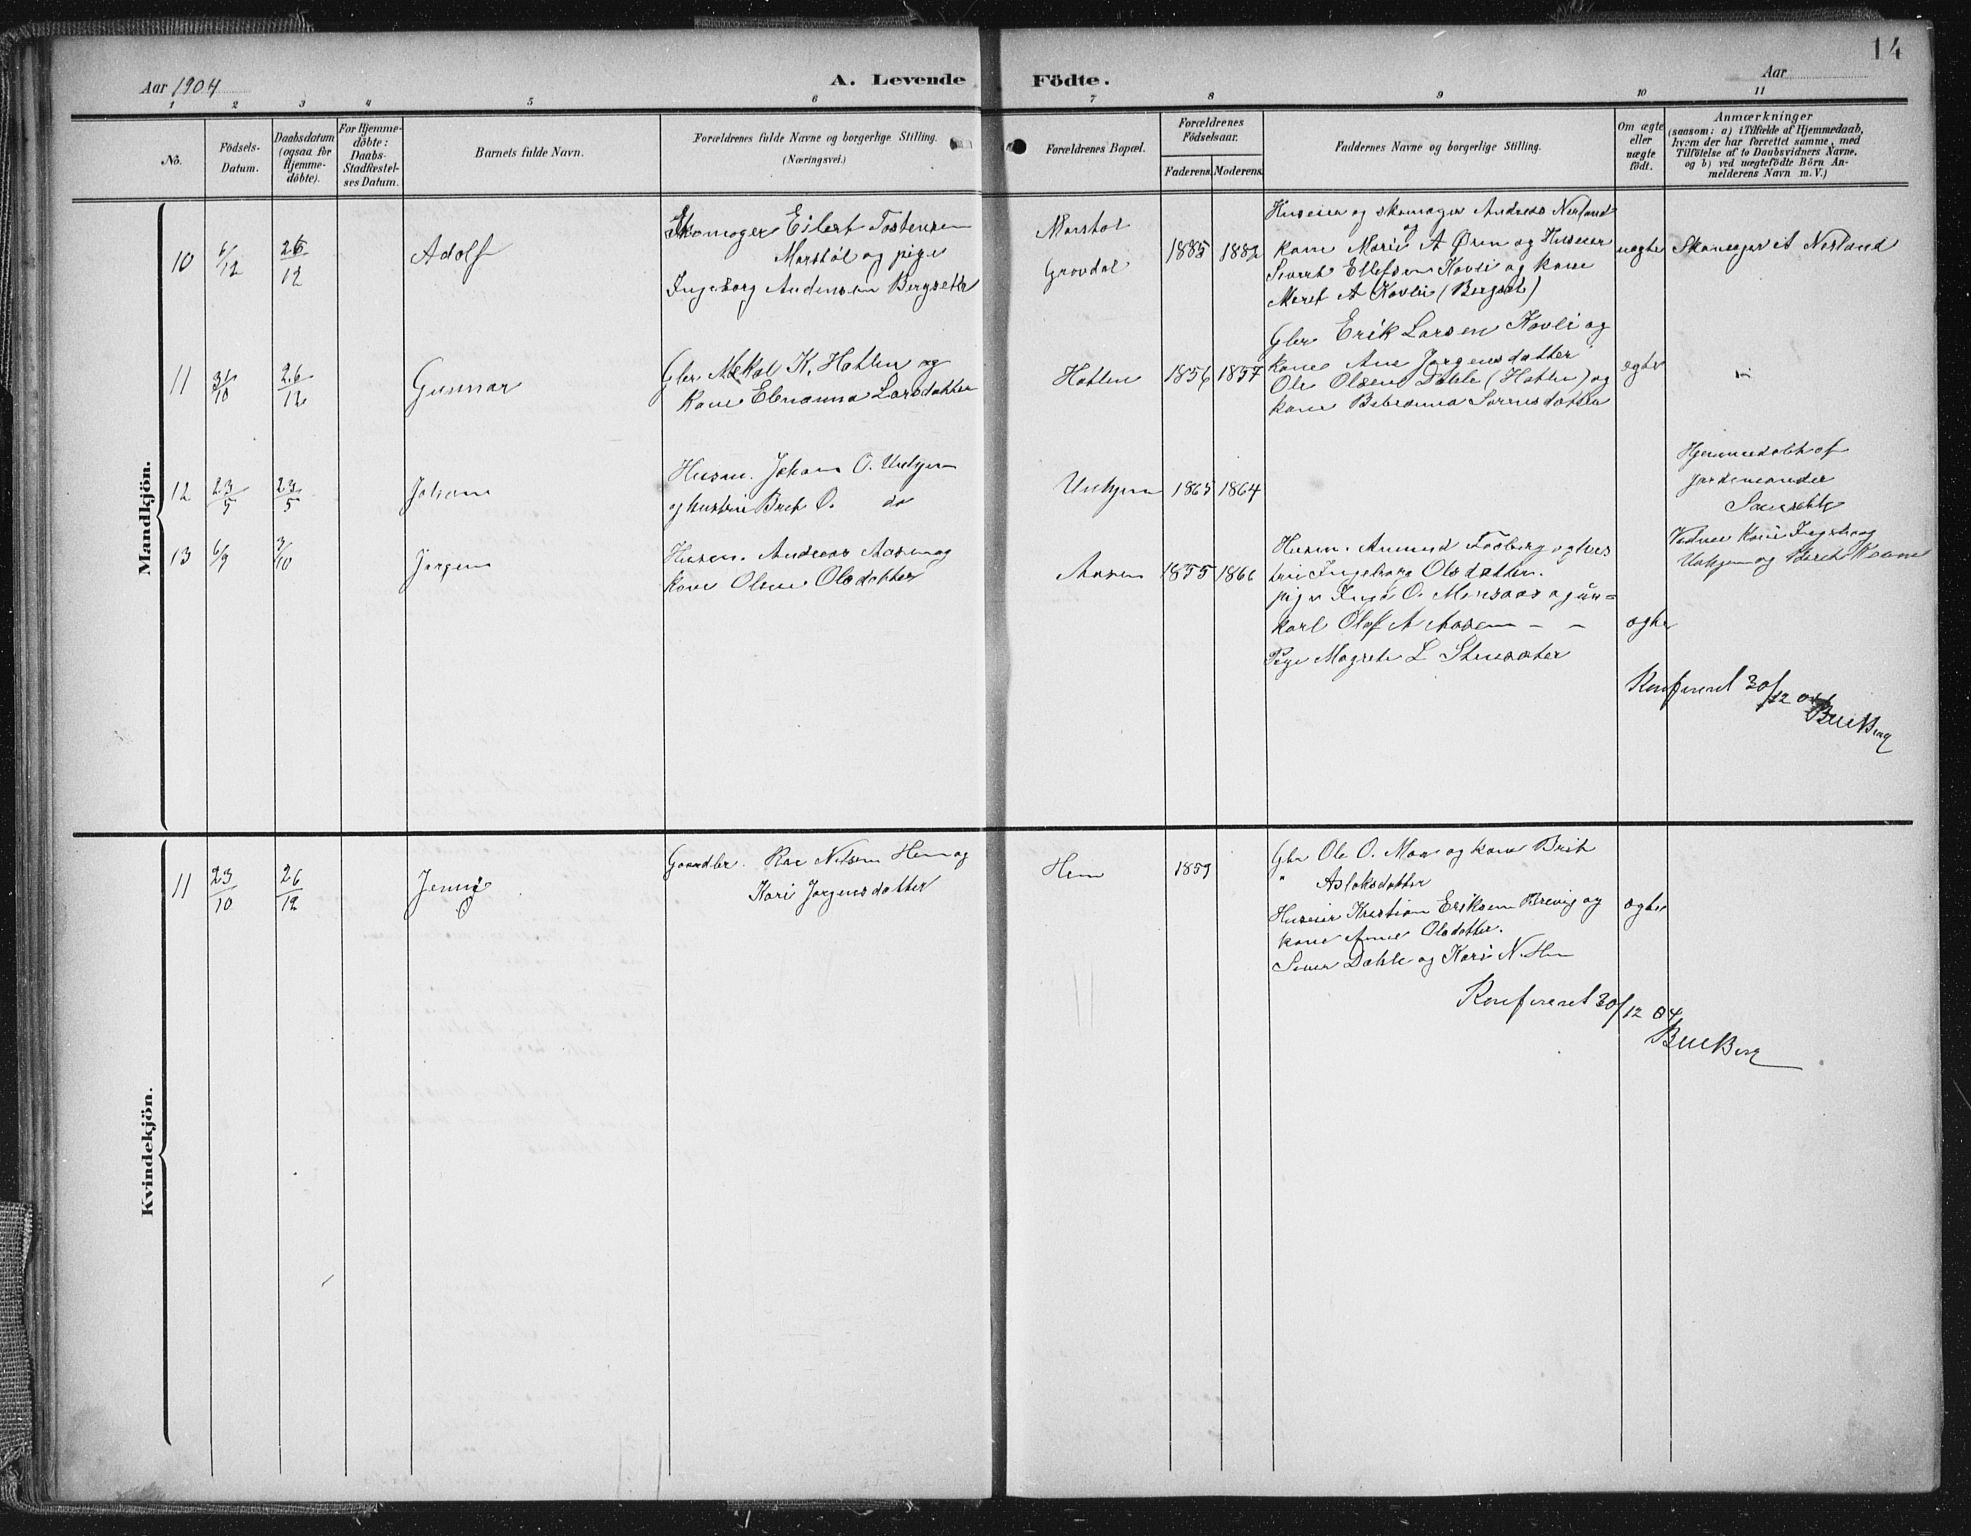 14
Aar 1904
A. Levende
Födte.
Aar
1 2 3 4 5 6 7 8 9 10 11
No.
Födsels-
Datum.
Daabsdatum
(ogsaa for
Hjemme-
döbte).
For Hjemme-
döbte:
Daabs-
Stadfæstel-
ses Datum.
Barnets fulde Navn.
Forældrenes fulde Navne og borgerlige Stilling.
(Næringsvei.)
Forældrenes Bopæl.
Forældrenes
Födselsaar.
Faderens.
Moderens.
Faddernes Navne og borgerlige Stilling.
Om ægte
eller
uægte
födt.
Anmærkninger
(saasom: a) i Tilfælde af Hjemmedaab,
hvem der har forrettet samme, med
Tilföielse af to Daabsvidners Navne,
og b) ved uægtefödte Börn An-
melderens Navn m. V.)
Mandkjön.
10
6/12
26/12
Adolf
Skomager Eilert Tostensen
Morstöl og pige
Ingeborg Andersen Bergseth
Morstöl
Grovdal
1885
1882
Huseier og skomager Andreas Nerland
og
kone Marie A Ören og Huseier
Sivert Ellefsen Kovli og kone
Meret A Kovli (Bergset)
uægte
Skomager A Nerland
11
31/10
26/12
Gunnar
Gbr K. Hatlen og
kone Elenanna Larsdatter
Hatlen
1856
1857
Gbr Erik Larsen Kovli og
kone Ane Jørgensdatter
Ole Olsen Dahle (Hatle) og
kone
ægte
12
23/5
23/5
Johan
Husm. Johan O. Unhjem
og hustru Brit O. do
Unhjem
1865
1864
Hjemmedøbt af
jordemoder
Sæsseth
Vidner Kone Ingeborg
Unhjem og Berit
13
6/9
3/10
Jørgen
Husm. Andreas Aasen og
kone Oline Olsdatter
Aasen
1855
1866
Husm. Amund Fosberg og hus
tru Ingeborg Olsdatter.
pige Inga O. Monsaas og un-
karl Olaf A Aasen — —
Pige Magrete L Stensæter
ægte
Konfereret 30/12 04
Bue Berg
Kvindekjön.
11
23/10
26/12
Jenny
Gaardbr. Nilsen Hem og
Kari Jørgensdatter
Hem
1859
Gbr Ole O. Moa og kone Brit
" Aslaksdatter
Huseier Kristian Eriksen Brevig og
kone Anne Olsdatter.
Dahle og Kari N. Hem
ægte
Konfereret 30/12 04
Bue Berg